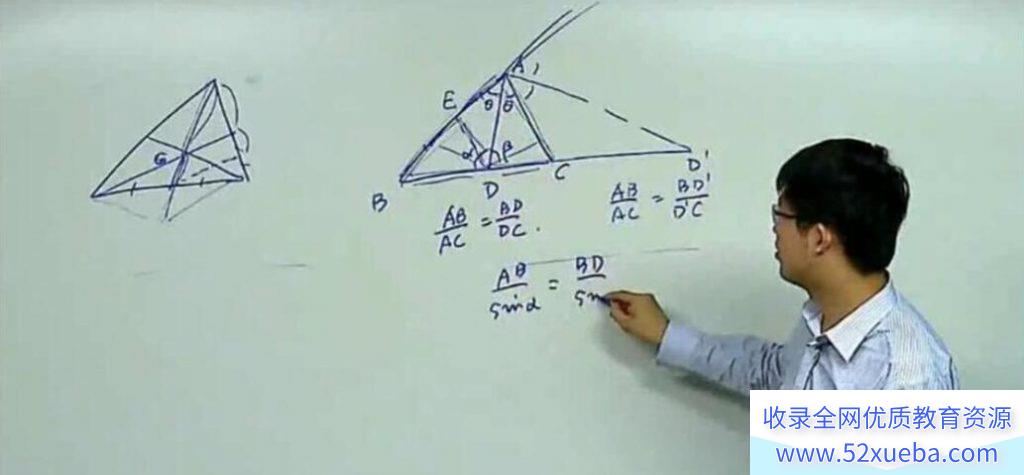 A
E
θ θ
G
α β
B
D
C
D'
AB/AC = BD/DC .
AB/AC = BD'/D'C
AB/sinα = BD/sin
收录全网优质教育资源
www.52xueba.com